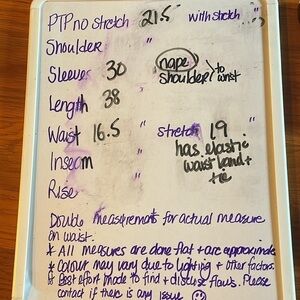 PTP no stretch 21.5 " with stretch "
Shoulder "
Sleeves 30 nape shoulder } to wrist
Length 38
Waist 16.5 " stretch 19 "
Inseam " has elastic waist band +
Rise tie
Double measurements for actual measure
on waist.
* All measures are done flat + are approximate
* Colour may vary due to lighting + other factors.
* Best effort made to find + disclose flaws. Please
contact if there is any issue ☺